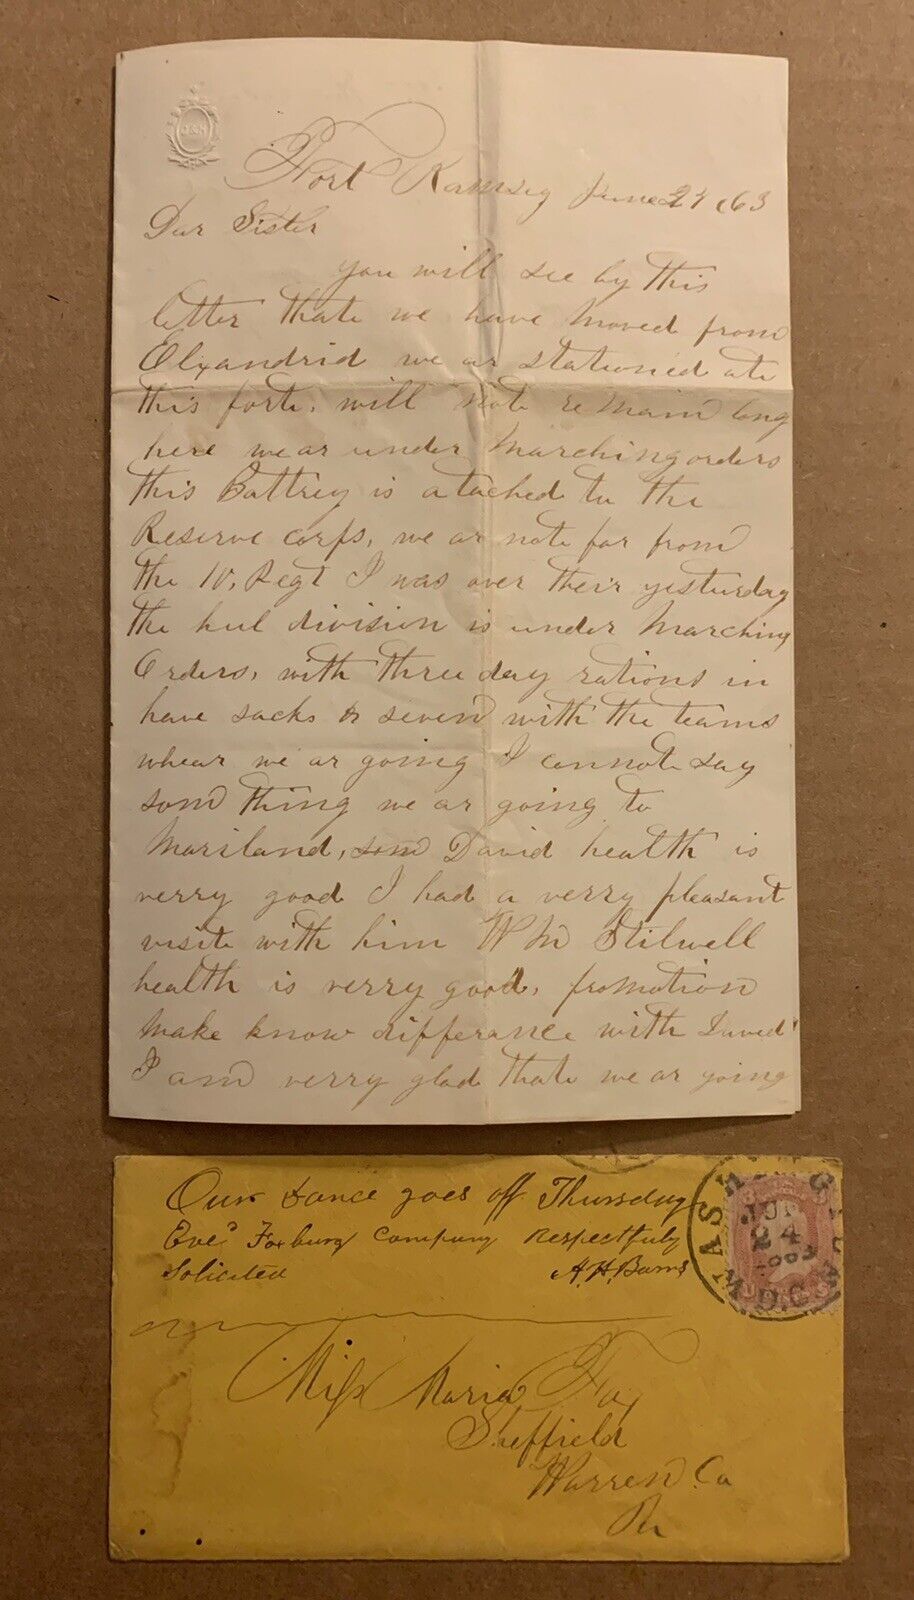 Fort Ramsey June 23 /63
Dear Sister
you will see by this
letter thate we have moved from
Elexandrid we ar stationed ate
this forte, will note remain long
here we ar under Marching orders
this Battrey is atached to the
Reserve corps, we ar note far from
the 10, Regt I was over their yesturday
the hul division is under Marching
Orders, with three day rations in
have sacks & seven with the teams
whear we ar going I cannote say
som thing we ar going to
Mariland, David health is
verry good I had a verry pleasant
visite with him Wm Stilwell
health is verry good, promotion
make know differance with David
I am verry glad thate we ar going
Our dance goes off Thursday
Eve? Foxburg Company respectfuly
Solicited A. H. Barns
WASHINGTON D.C.
JUN
24
1863
Miss Maria Fay
Sheffield
Warren Co
Pa